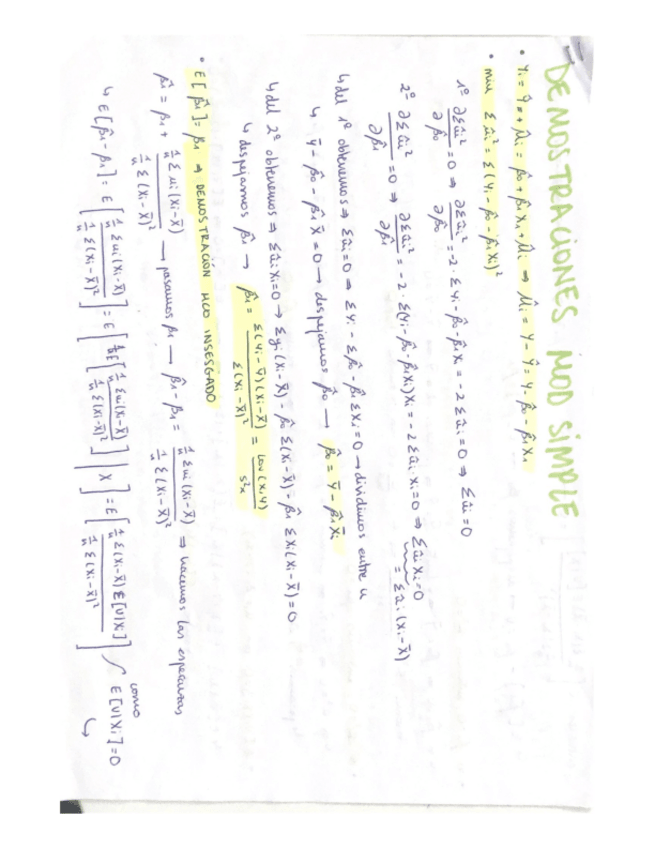 DEMOSTRACIONES MOD SIMPLE
• Yi = Ŷi + μ̂i = β̂0 + β̂1 Xi + μ̂i ⇒ μ̂i = Y - Ŷ = Y - β̂0 - β̂1 Xi
• min Σ ûi² = Σ (Yi - β̂0 - β̂1 Xi)²
1º ∂Σûi² / ∂β̂0 = 0 ⇒ ∂Σûi² / ∂β̂0 = -2 · Σ Yi - β̂0 - β̂1 Xi = -2 Σ ûi = 0 ⇒ Σ ûi = 0
2º ∂Σûi² / ∂β̂1 = 0 ⇒ ∂Σûi² / ∂β̂1 = -2 · Σ(Yi - β̂0 - β̂1 Xi) Xi = -2 Σ ûi Xi = 0 ⇒ Σ ûi Xi = 0
= Σ ûi (Xi - X̄)
↳ del 1º obtenemos ⇒ Σ ûi = 0 → Σ Yi - Σ β̂0 - β̂1 Σ Xi = 0 → dividimos entre n
↳ Ȳ - β̂0 - β̂1 X̄ = 0 → despejamos β̂0 → β̂0 = Ȳ - β̂1 X̄i
↳ del 2º obtenemos ⇒ Σ ûi Xi = 0 → Σ yi (Xi - X̄) - β̂0 Σ (Xi - X̄) - β̂1 Σ Xi (Xi - X̄) = 0
↳ despejamos β̂1 → β̂1 = Σ (Yi - Ȳ) (Xi - X̄) / Σ (Xi - X̄)² = Cov (X, Y) / S²x
• E[β̂1] = β1 ⇒ DEMOSTRACIÓN MCO INSESGADO
β̂1 = β1 + 1/n Σ ui (Xi - X̄) / 1/n Σ (Xi - X̄)² → pasamos β1 → β̂1 - β1 = 1/n Σ ui (Xi - X̄) / 1/n Σ (Xi - X̄)² ⇒ hacemos las esperanzas
↳ E[β̂1 - β1] = E[1/n Σ ui (Xi - X̄) / 1/n Σ (Xi - X̄)²] = E[E[1/n Σ ui (Xi - X̄) / 1/n Σ (Xi - X̄)²] | X] = E[1/n Σ (Xi - X̄) E[U|Xi] / 1/n Σ (Xi - X̄)²] como E[U|Xi] = 0